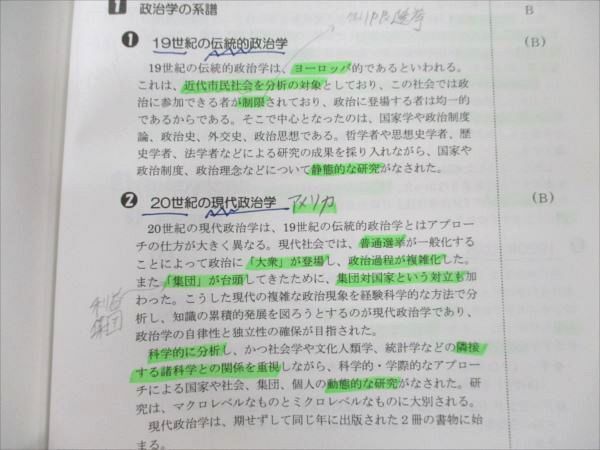 1 政治学の系譜 B
❶ 19世紀の伝統的政治学 (B)
19世紀の伝統的政治学は、ヨーロッパ的であるといわれる。
これは、近代市民社会を分析の対象としており、この社会では政
治に参加できる者が制限されており、政治に登場する者は均一的
であるからである。そこで中心となったのは、国家学や政治制度
論、政治史、外交史、政治思想である。哲学者や思想史学者、歴
史学者、法学者などによる研究の成果を採り入れながら、国家や
政治制度、政治理念などについて静態的な研究がなされた。
❷ 20世紀の現代政治学 アメリカ (B)
20世紀の現代政治学は、19世紀の伝統的政治学とはアプロー
チの仕方が大きく異なる。現代社会では、普通選挙が一般化する
ことによって政治に「大衆」が登場し、政治過程が複雑化した。
また「集団」が台頭してきたために、集団対国家という対立も加
わった。こうした現代の複雑な政治現象を経験科学的な方法で分
利益
集団
析し、知識の累積的発展を図ろうとするのが現代政治学であり、
政治学の自律性と独立性の確保が目指された。
科学的に分析し、かつ社会学や文化人類学、統計学などの隣接
する諸科学との関係を重視しながら、科学的・学際的なアプロー
チによる国家や社会、集団、個人の動態的な研究がなされた。研
究は、マクロレベルなものとミクロレベルなものに大別される。
現代政治学は、期せずして同じ年に出版された2冊の書物に始
まる。